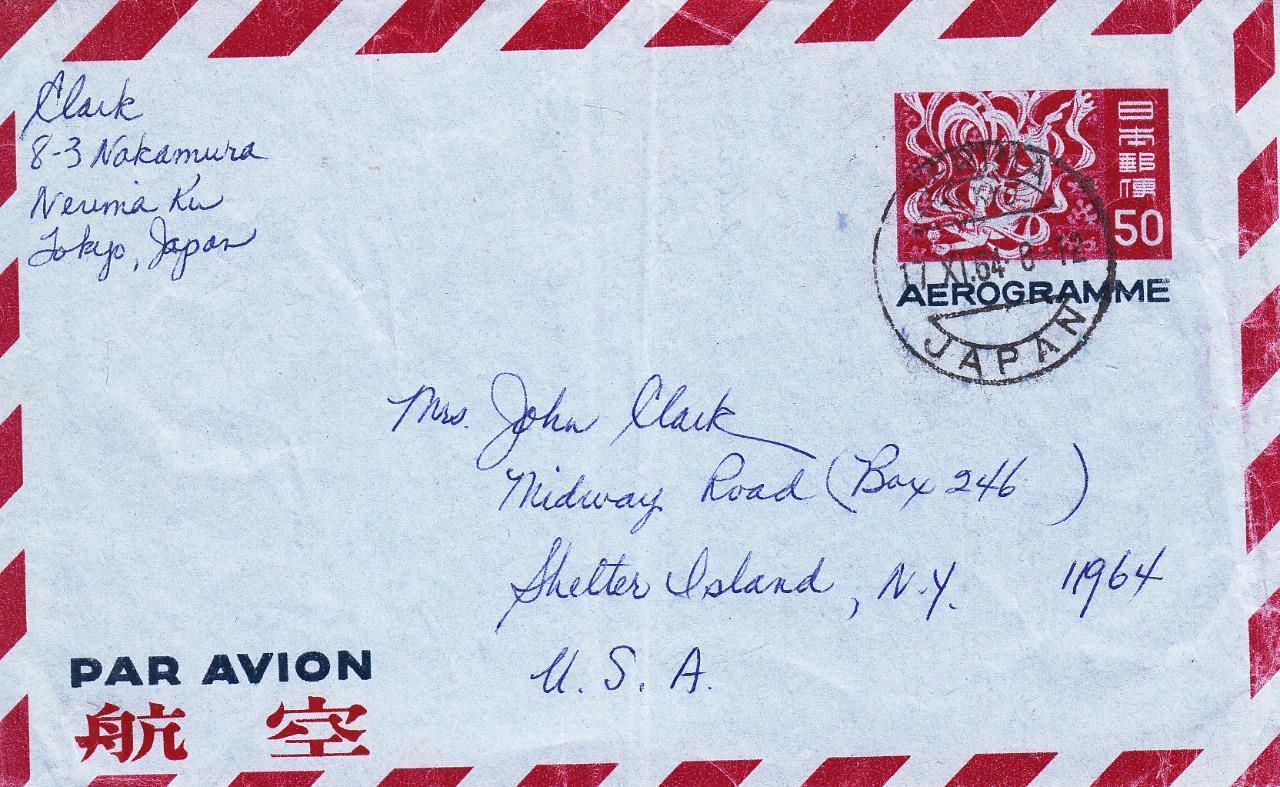 Clark
8-3 Nakamura
Nerima Ku
Tokyo, Japan
日本郵便
50
17 XI.64 8-12
AEROGRAMME
JAPAN
Mrs. John Clark
Midway Road (Box 246)
Shelter Island, N.Y. 11964
U. S. A.
PAR AVION
航空